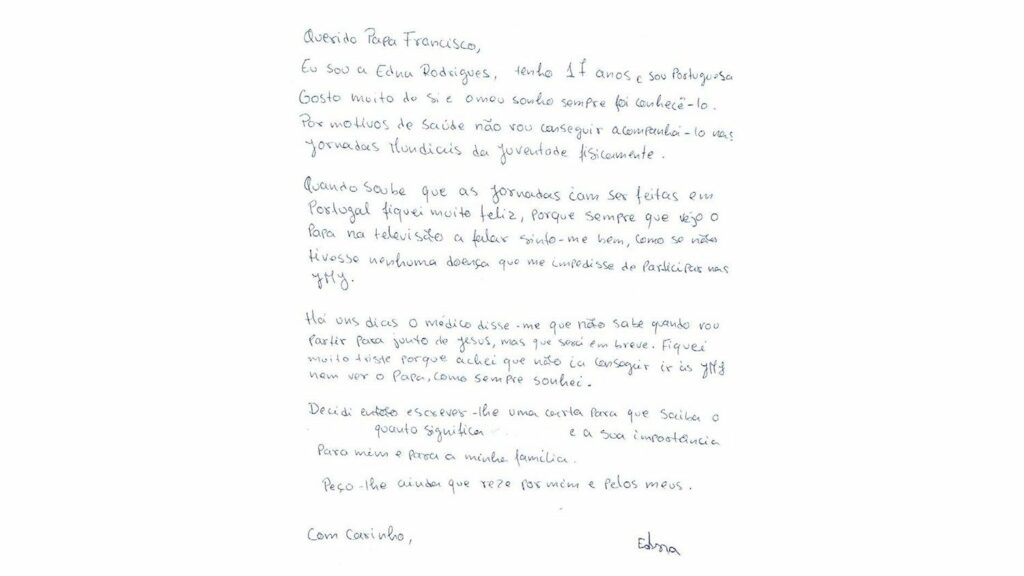 Querido Papa Francisco,
Eu sou a Edna Rodrigues, tenho 17 anos e sou Portuguesa
Gosto muito de si e o meu sonho sempre foi conhecê-lo.
Por motivos de saúde não vou conseguir acompanhá-lo nas
Jornadas Mundiais da Juventude fisicamente.
Quando soube que as Jornadas iam ser feitas em
Portugal fiquei muito feliz, porque sempre que vejo o
Papa na televisão a falar sinto-me bem, como se não
tivesse nenhuma doença que me impedisse de participar nas
JMJ.
Há uns dias o médico disse-me que não sabe quando vou
partir para junto de Jesus, mas que será em breve. Fiquei
muito triste porque achei que não ia conseguir ir às JMJ
nem ver o Papa, como sempre sonhei.
Decidi então escrever-lhe uma carta para que saiba o
quanto significa e a sua importância
para mim e para a minha família.
Peço-lhe ainda que reze por mim e pelos meus.
Com Carinho,
Edna